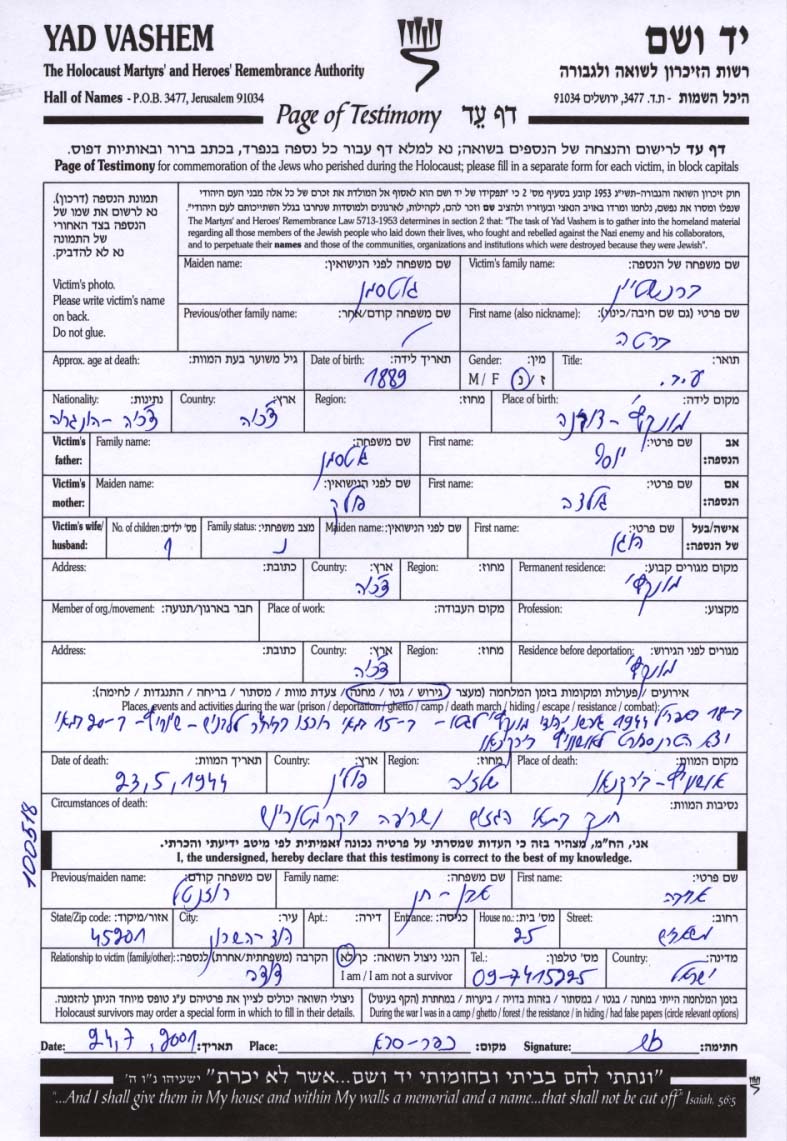 YAD VASHEM
יד ושם
The Holocaust Martyrs' and Heroes' Remembrance Authority
רשות הזיכרון לשואה ולגבורה
Hall of Names - P.O.B. 3477, Jerusalem 91034
היכל השמות - ת.ד. 3477, ירושלים 91034
Page of Testimony דף עֵד
דף עד לרישום והנצחה של הנספים בשואה; נא למלא דף עבור כל נספה בנפרד, בכתב ברור ובאותיות דפוס.
Page of Testimony for commemoration of the Jews who perished during the Holocaust; please fill in a separate form for each victim, in block capitals
תמונת הנספה (דרכון).
נא לרשום את שמו של
הנספה בצד האחורי
של התמונה
נא לא להדביק.
Victim's photo.
Please write victim's name
on back.
Do not glue.
חוק זיכרון השואה והגבורה-תשי"ג 1953 קובע בסעיף מס' 2 כי "תפקידו של יד ושם הוא לאסוף אל המולדת את זכרם של כל אלה מבני העם היהודי
שנפלו ומסרו את נפשם, נלחמו ומרדו באויב הנאצי ובעוזריו ולהציב שם וזכר להם, לקהילות, לארגונים ולמוסדות שנחרבו בגלל השתייכותם לעם היהודי".
The Martyrs' and Heroes' Remembrance Law 5713-1953 determines in section 2 that: "The task of Yad Vashem is to gather into the homeland material
regarding all those members of the Jewish people who laid down their lives, who fought and rebelled against the Nazi enemy and his collaborators,
and to perpetuate their names and those of the communities, organizations and institutions which were destroyed because they were Jewish".
Maiden name: שם משפחה לפני הנישואין: Victim's family name: שם משפחה של הנספה:
גוטסמן ברנשטיין
Previous/other family name: שם משפחה קודם/אחר: First name (also nickname): שם פרטי (גם שם חיבה/כינוי):
ברטה
Approx. age at death: גיל משוער בעת המוות: Date of birth: תאריך לידה: Gender: מין: Title: תואר:
1889 M / F ז / נ
Nationality: נתינות: Country: ארץ: Region: מחוז: Place of birth: מקום לידה:
צ'כיה - הונגריה צ'כיה
Victim's father: Family name: שם משפחה: First name: שם פרטי: אב הנספה:
גוטסמן יוסף
Victim's mother: Maiden name: שם לפני הנישואין: First name: שם פרטי: אם הנספה:
Victim's wife/ husband: No. of children: מס' ילדים: Family status: מצב משפחתי: Maiden name: שם לפני הנישואין: First name: שם פרטי: אישה/בעל של הנספה:
1 נ
Address: כתובת: Country: ארץ: Region: מחוז: Permanent residence: מקום מגורים קבוע:
צ'כיה מונקץ'
Member of org./movement: חבר בארגון/תנועה: Place of work: מקום העבודה: Profession: מקצוע:
Address: כתובת: Country: ארץ: Region: מחוז: Residence before deportation: מגורים לפני הגירוש:
צ'כיה מונקץ'
אירועים / פעולות ומקומות בזמן המלחמה (מעצר / גירוש / גטו / מחנה / צעדת מוות / מסתור / בריחה / התנגדות / לחימה):
Places, events and activities during the war (prison / deportation / ghetto / camp / death march / hiding / escape / resistance / combat):
ב-18 באפריל 1944 יהודי מונקץ' לגטו - ב-15 במאי רוכזו ב-20 במאי
יצא הטרנספורט לאושויץ בירקנאו
Date of death: תאריך המוות: Country: ארץ: Region: מחוז: Place of death: מקום המוות:
23,5,1944 פולין שלזיה אושויץ-בירקנאו
Circumstances of death: נסיבות המוות:
חנק בתאי הגזים ושריפה בקרמטוריום
100518
אני, הח"מ, מצהיר בזה כי העדות שמסרתי על פרטיה נכונה ואמיתית לפי מיטב ידיעתי והכרתי.
I, the undersigned, hereby declare that this testimony is correct to the best of my knowledge.
Previous/maiden name: שם משפחה קודם: Family name: שם משפחה: First name: שם פרטי:
רוזנטל אבן-חן
State/Zip code: אזור/מיקוד: City: עיר: Apt.: דירה: Entrance: כניסה: House no.: מס' בית: Street: רחוב:
45201 הוד-השרון 25
Relationship to victim (family/other): הקרבה (משפחתית/אחרת) לנספה: הנני ניצול השואה: כן/לא Tel.: מס' טלפון: Country: מדינה:
I am / I am not a survivor 09-7415225 ישראל
ניצולי השואה יכולים לציין את פרטיהם ע"ג טופס מיוחד הניתן להזמנה.
Holocaust survivors may order a special form in which to fill in their details.
בזמן המלחמה הייתי במחנה / בגטו / במסתור / בזהות בדויה / ביערות / במחתרת (הקף בעיגול)
During the war I was in a camp / ghetto / forest / the resistance / in hiding / had false papers (circle relevant options)
Date: 24,7,2001 תאריך: Place: כפר-סבא מקום: Signature: חתימה:
"ונתתי להם בביתי ובחומותי יד ושם...אשר לא יכרת" ישעיהו נ"ו ה'
"...And I shall give them in My house and within My walls a memorial and a name...that shall not be cut off" Isaiah, 56:5